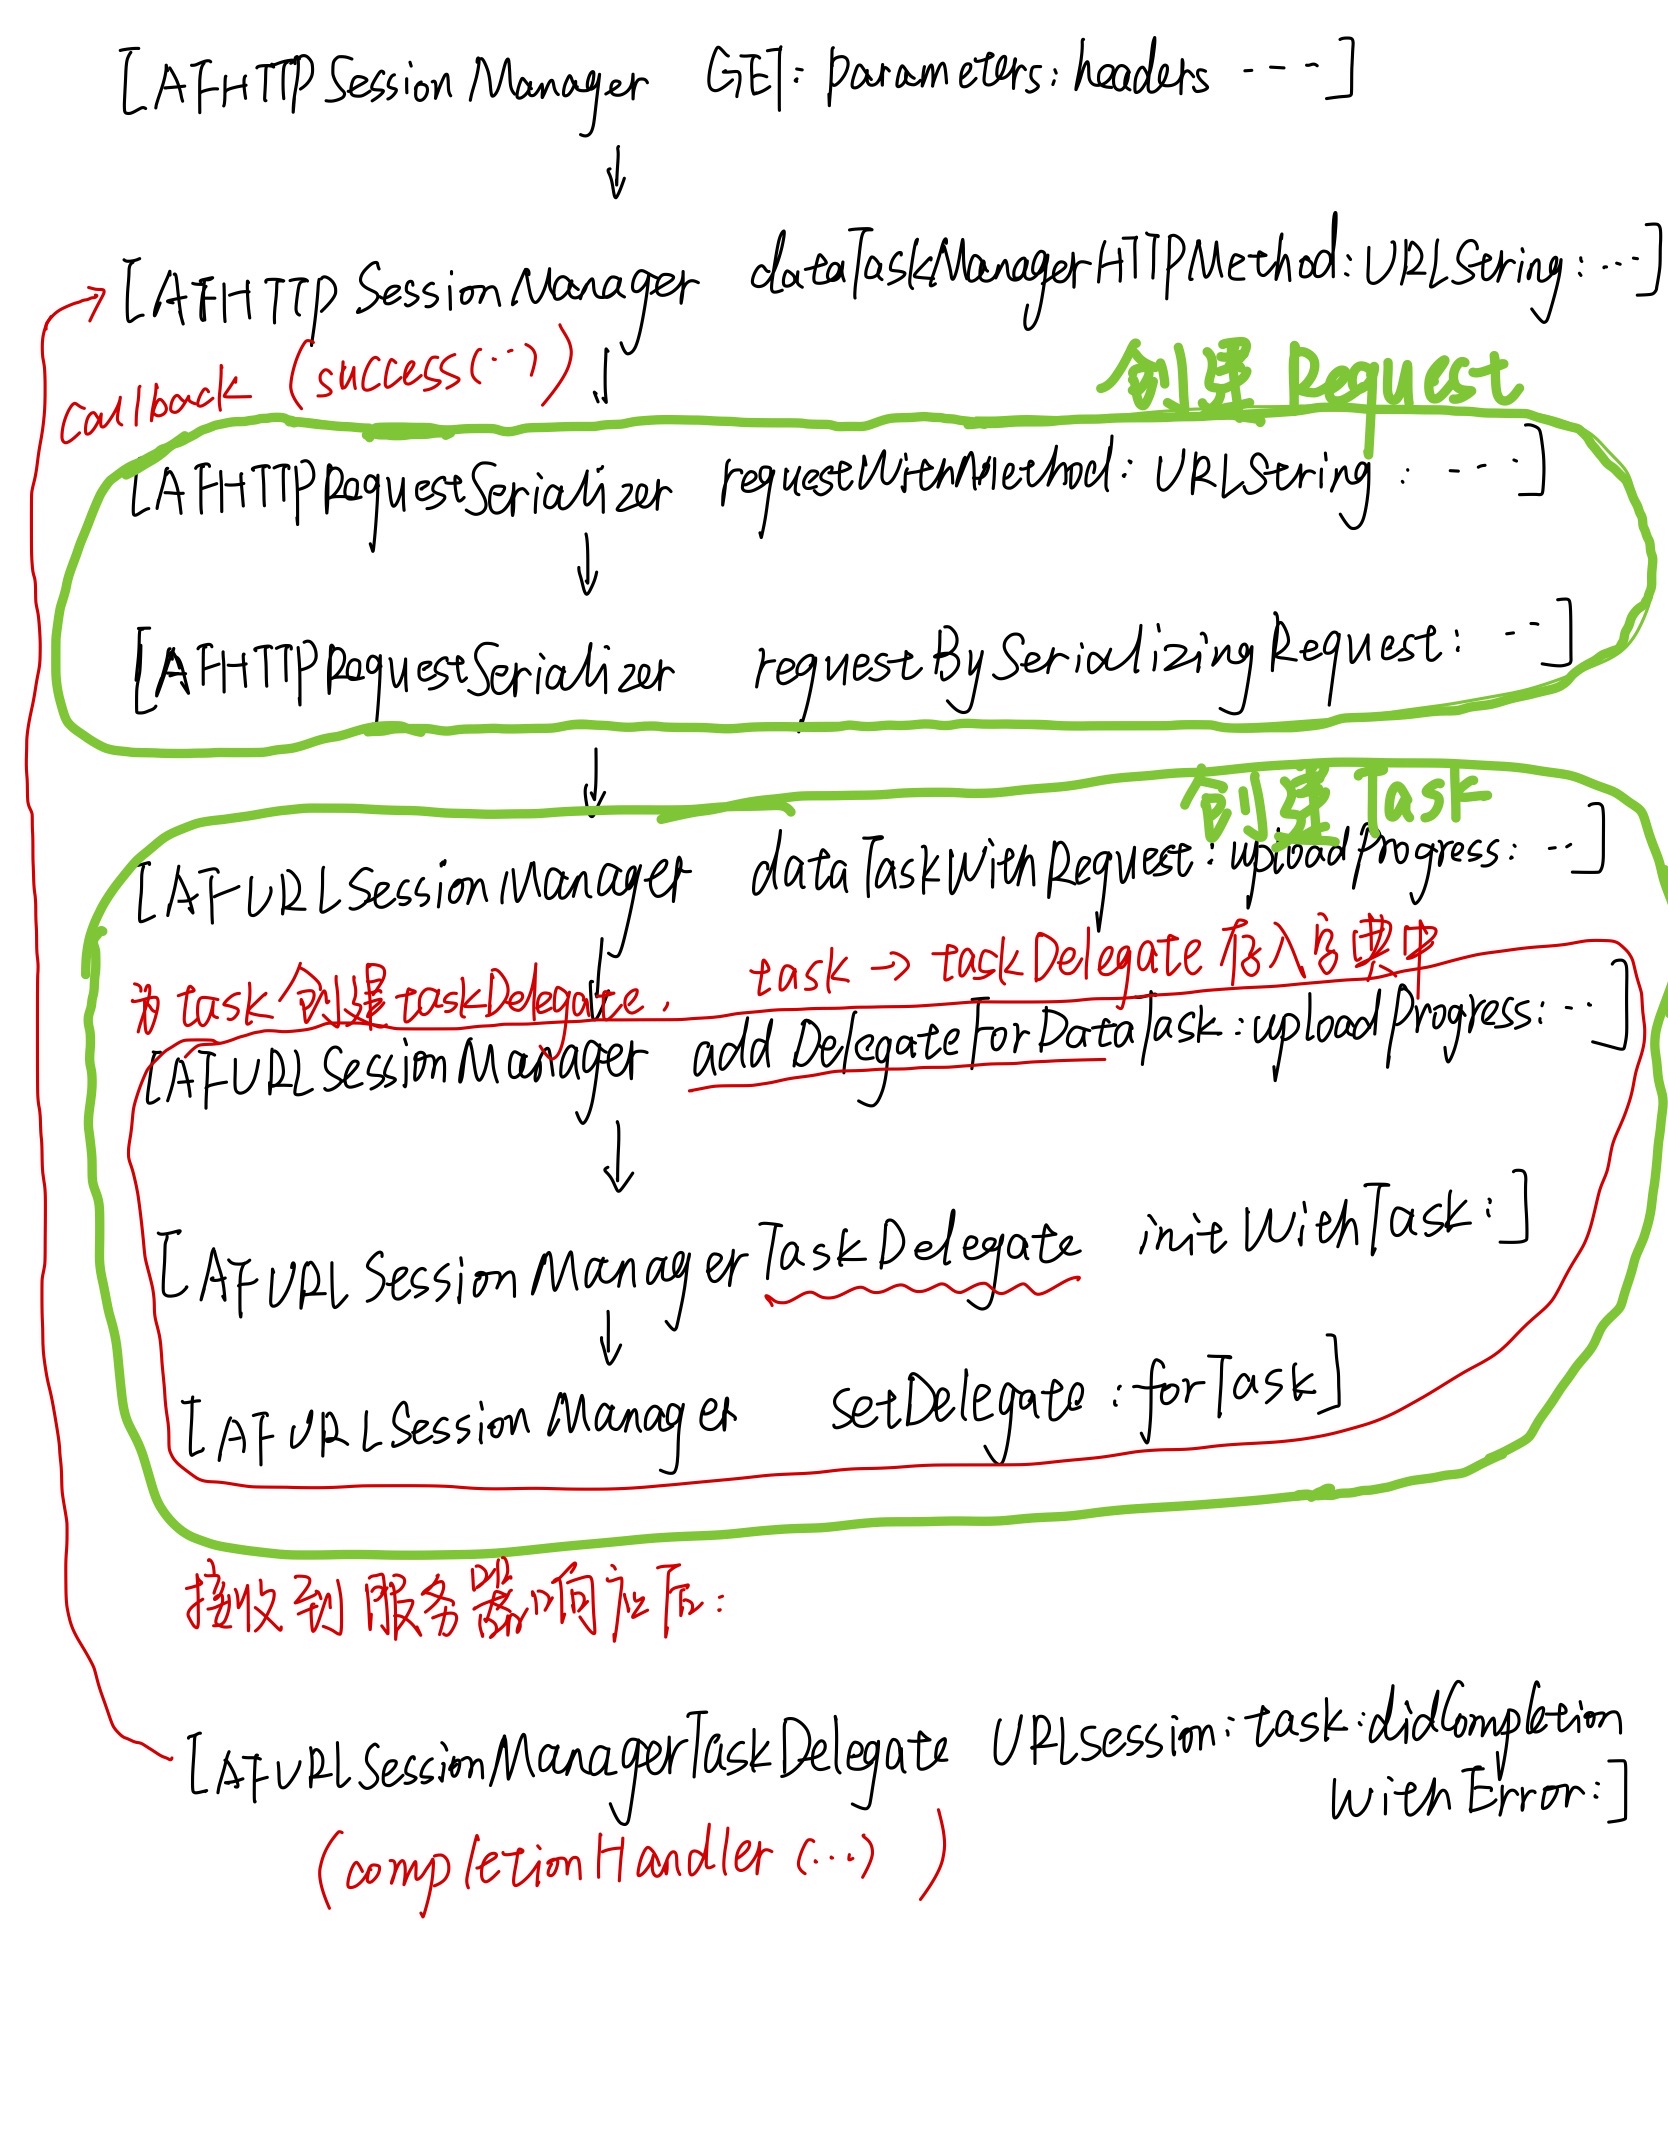 [AFHTTPSessionManager GET: parameters: headers ----]
[AFHTTPSessionManager dataTaskManagerHTTPMethod: URLString: ...]
callback (success(...))
创建 Request
[AFHTTPRequestSerializer requestWithMethod: URLString: ----]
[AFHTTPRequestSerializer requestBySerializingRequest: ...]
创建 Task
[AFURLSessionManager dataTaskWithRequest: uploadProgress: ...]
为 task 创建 taskDelegate, task → taskDelegate 存入字典中
[AFURLSessionManager addDelegateForDataTask: uploadProgress: ...]
[AFURLSessionManagerTaskDelegate initWithTask:]
[AFURLSessionManager setDelegate: forTask]
接收到服务器响应后:
[AFURLSessionManagerTaskDelegate URLsession: task: didCompletion
withError:]
(completionHandler (...) )